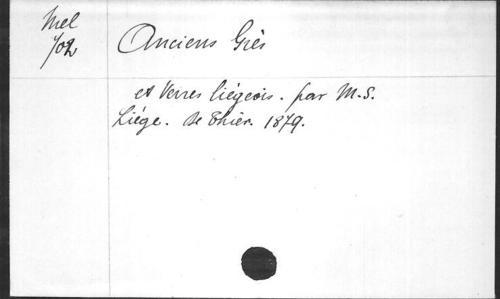 Mel
702
Anciens Grès
et Verres liégeois. par M.S.
Liége. de Thier. 1879.